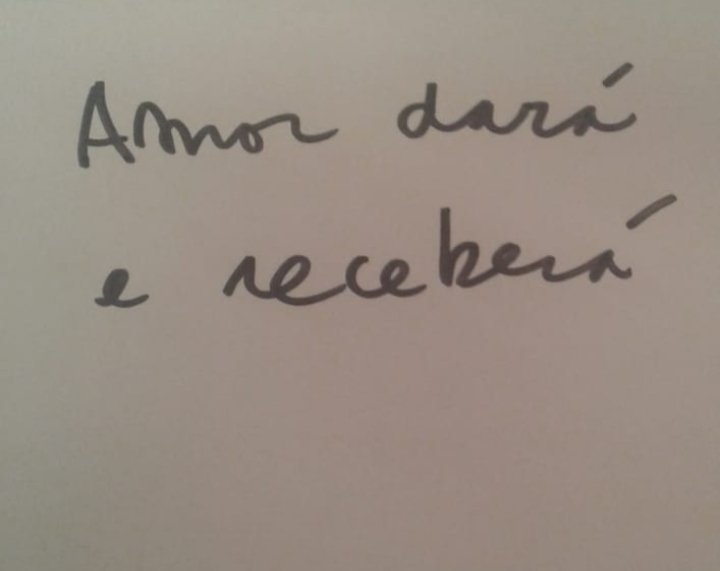 Amor dará
e receberá